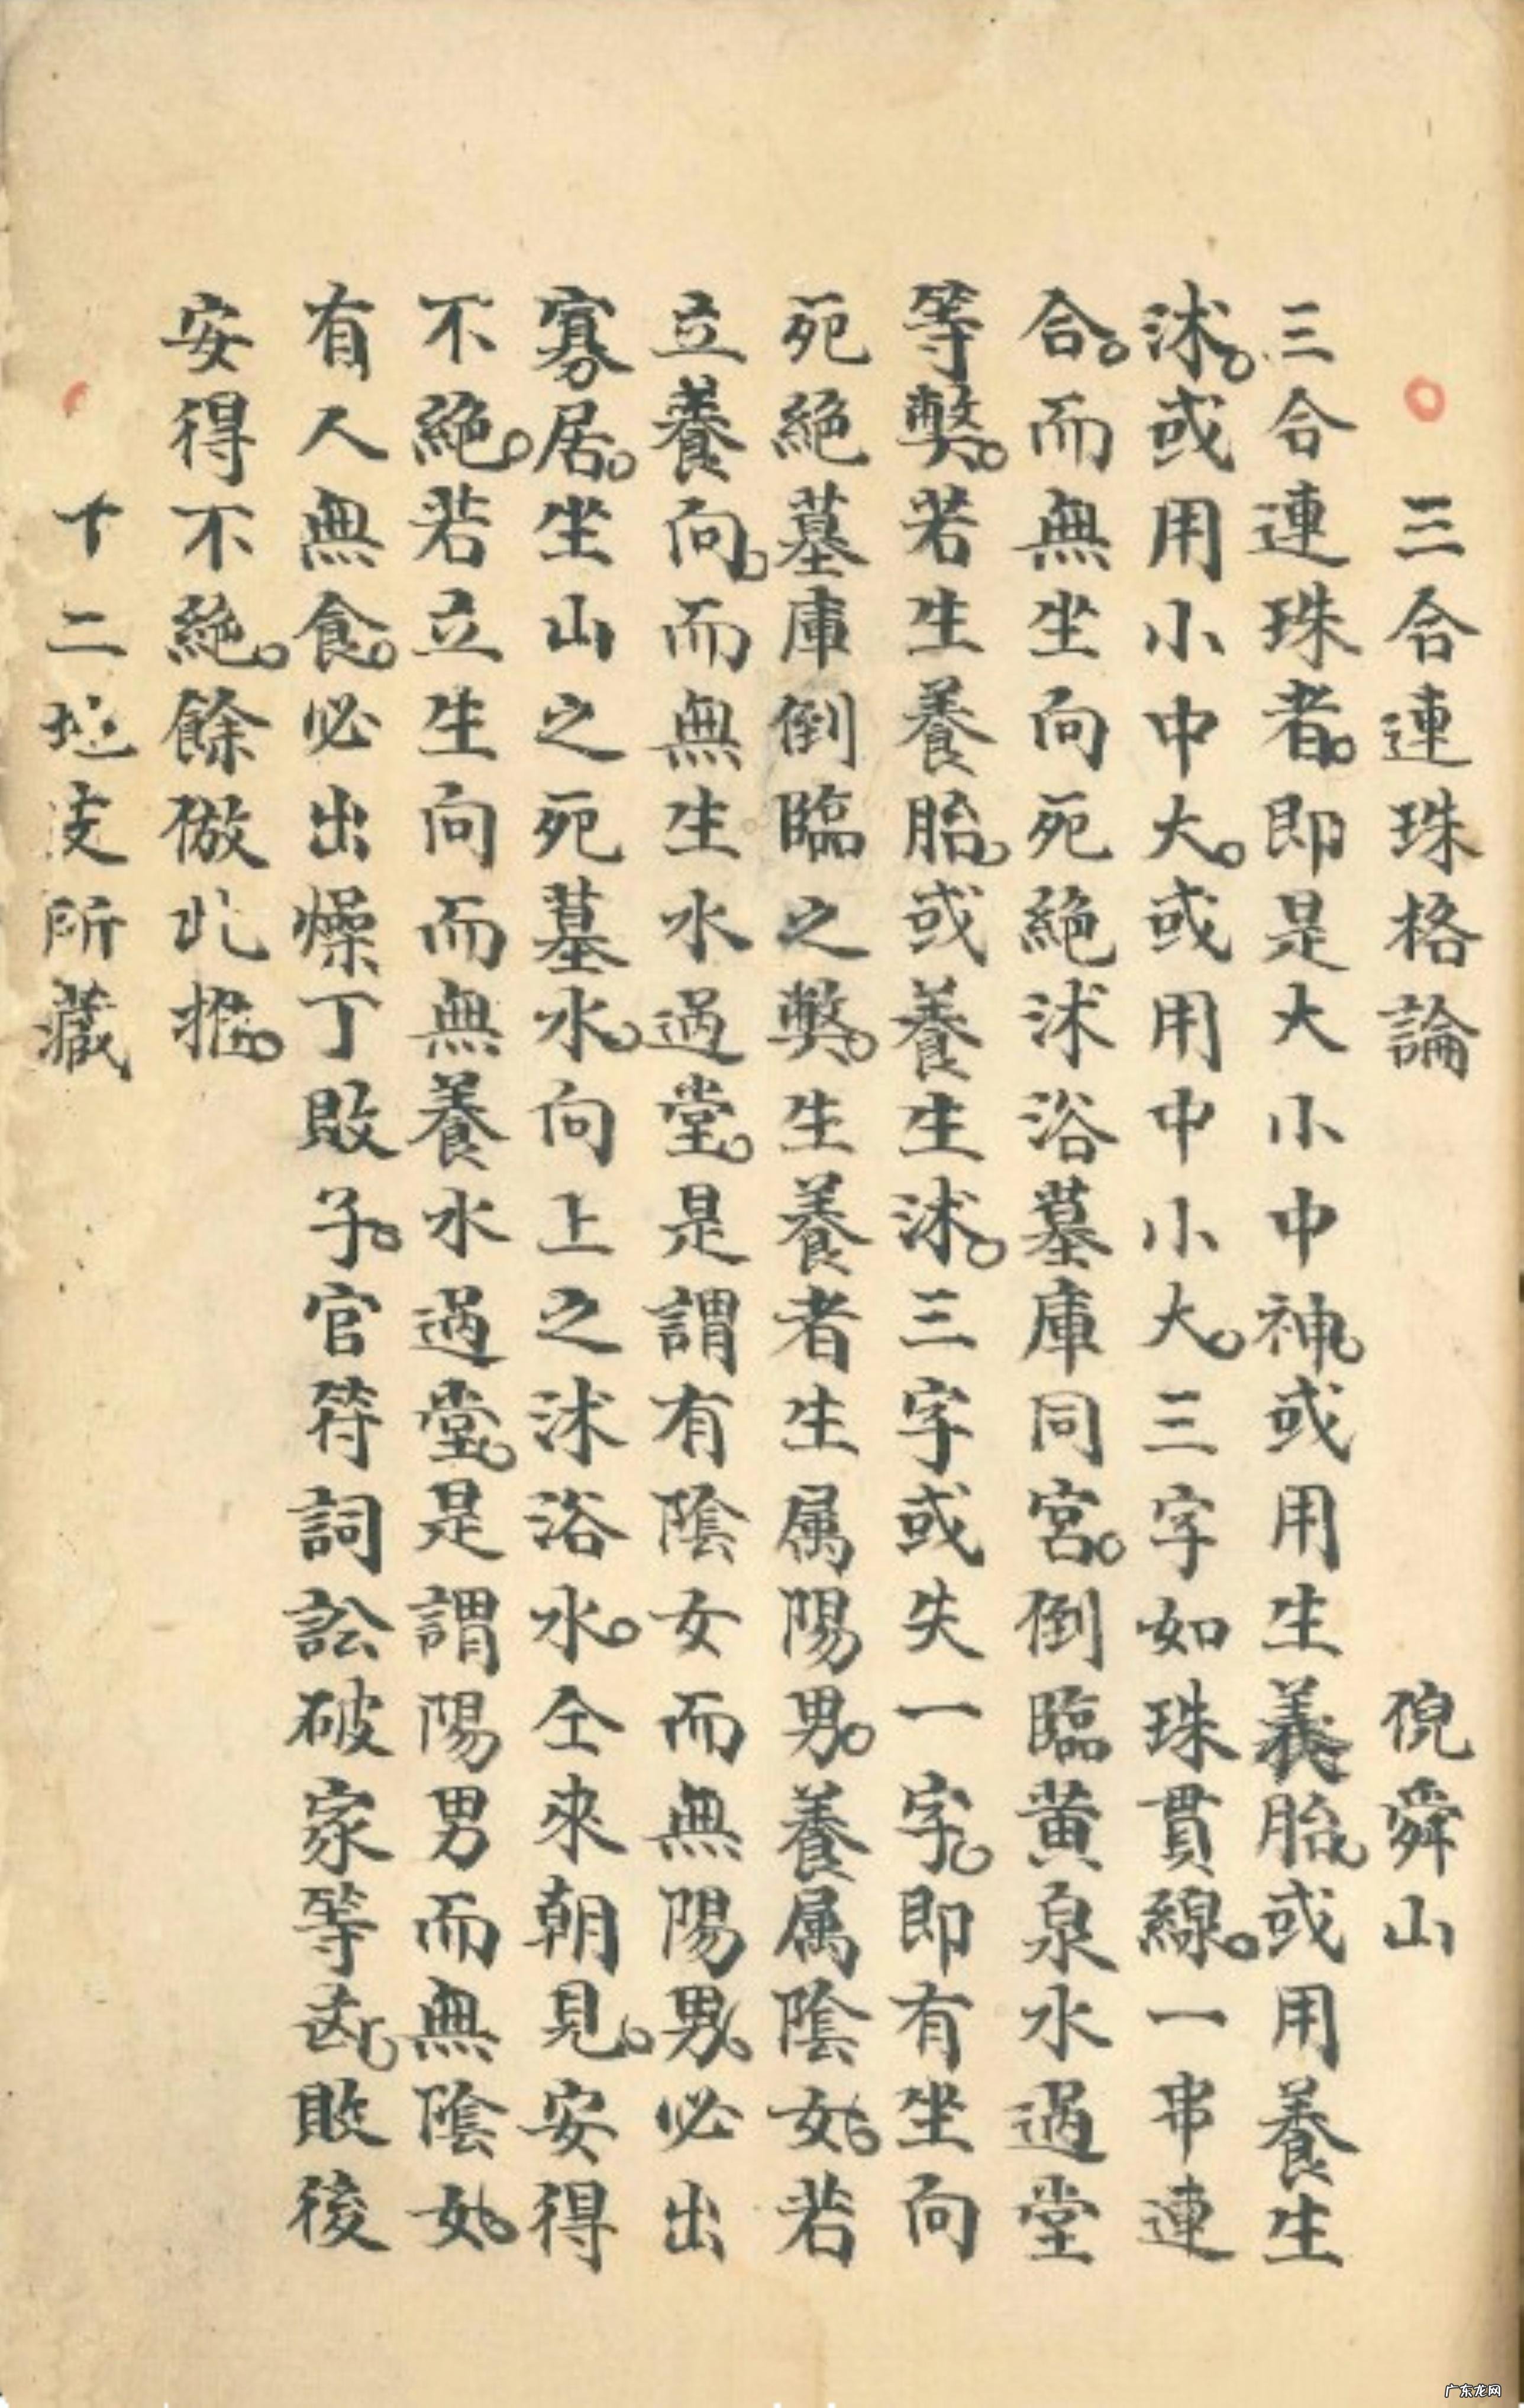 三合連珠格論 倪舜山
三合連珠者。即是大小中神。或用生義胎。或用養生
沭。或用小中大。或用中小大。三字如珠貫線。一串連
合。而無坐向死絕沭浴墓庫同宮。倒臨黄泉水過堂
等獘。若生養胎。或養生沭。三字或失一字。即有坐向
死絕墓庫倒臨之獘。生養者生属陽男。養属陰女。若
立養向。而無生水過堂。是謂有陰女而無陽男。必出
寡居。坐山之死墓水。向上之沭浴水。仝來朝見。安得
不絕。若立生向而無養水過堂。是謂陽男而無陰女。
有人無食。必出燥丁敗子。官符詞訟破家等凶。敗後
安得不絕。餘倣此推。
十二地支所藏
广东龙网